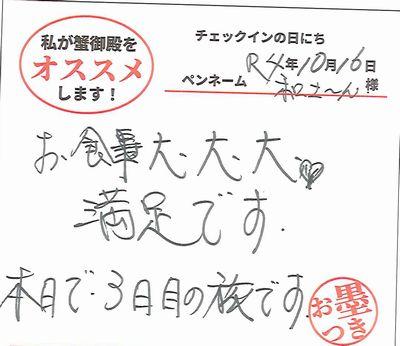 私が蟹御殿を
オススメ
します！
チェックインの日にち
R4年10月16日
ペンネーム 和さ〜ん 様
お食事大、大、大
満足です.
本日で.3日目の旅です.
お墨つき